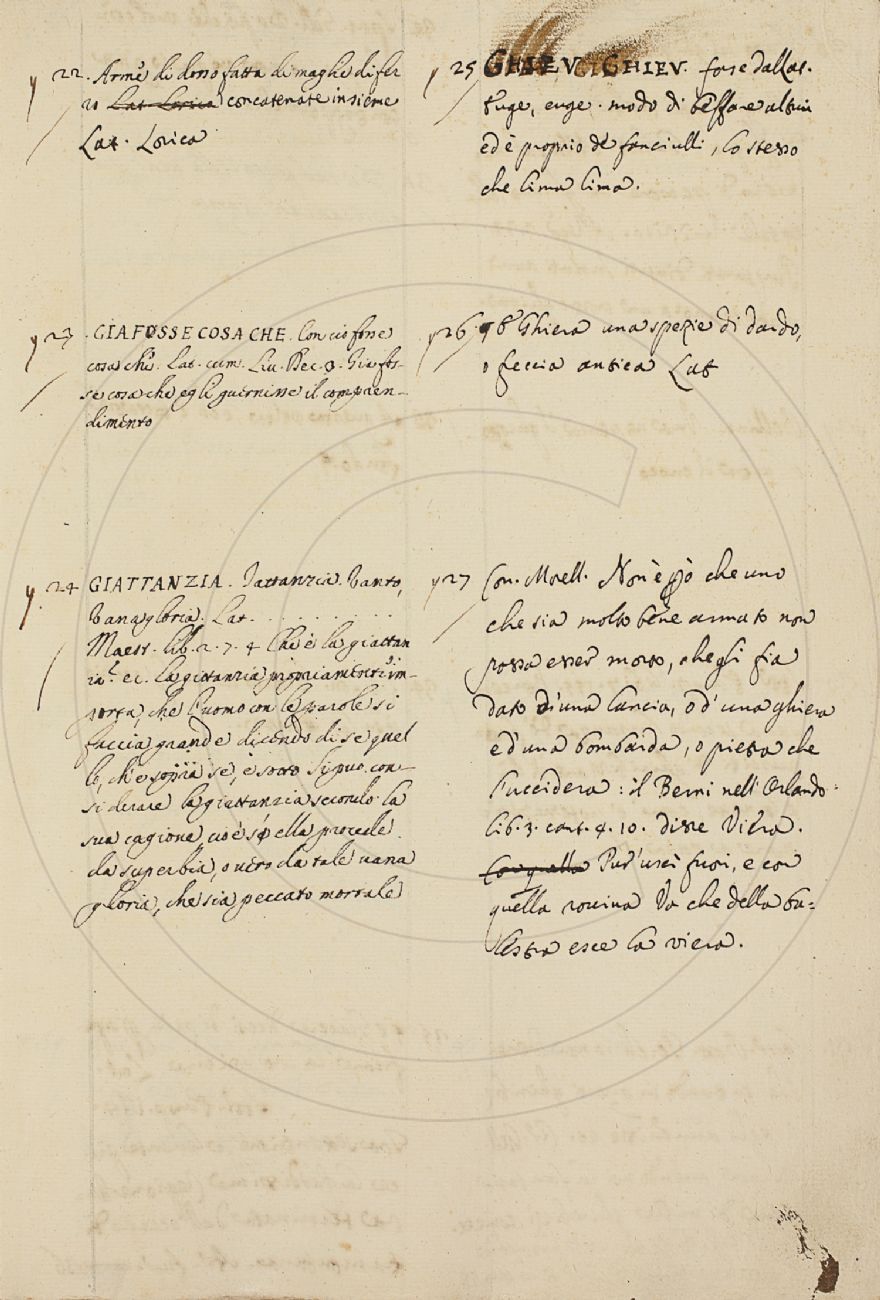 22. Arme di dosso fatta di maglie di fer
ro Lat. Lorica concatenate insieme
Lat. Lorica
23. GIAFOSSECOSACHE. Con cio fosse
cosa che. Lat. cum. Liv. Dec. 3. Gia fos-
se cosa che egli guernisse il compren-
dimento
24 GIATTANZIA. Jattanzia. Vanto,
Vanagloria. Lat. . . . . . . . .
Maestr. lib. 2. 7. 4 Che è la giattan
zia? ec. La giattanzia propriamente im-
porta, che l'uomo con le parole si
faccia grande dicendo di se quel
lo, che è sopra se, e sotto si puo con-
siderare la giattanzia secondo la
sua cagione, cioè s' ella procede
da superbia, o vero da tale vana
gloria, che sia peccato mortale
25 GHIEV, GHIEV. forse dal Lat.
Euge, euge. modo di beffare altrui
ed è proprio de' fanciulli, lo stesso
che lima lima.
26. Ghiera una spezie di dardo,
o feccia antica Lat
27 Con. Morell. Non è però che uno
che sia molto bene armato non
possa esser morto, che gli fia
dato d'una lancia, o d'una ghiera
e d'una bombarda, o pietra che
l'uccidera: il Berni nell' Orlando
lib. 3. cant. 4. 10. disse Viera.
Pur' uscì fuori, e con
quella rovina Va che della ba=
lestra esce la viera.